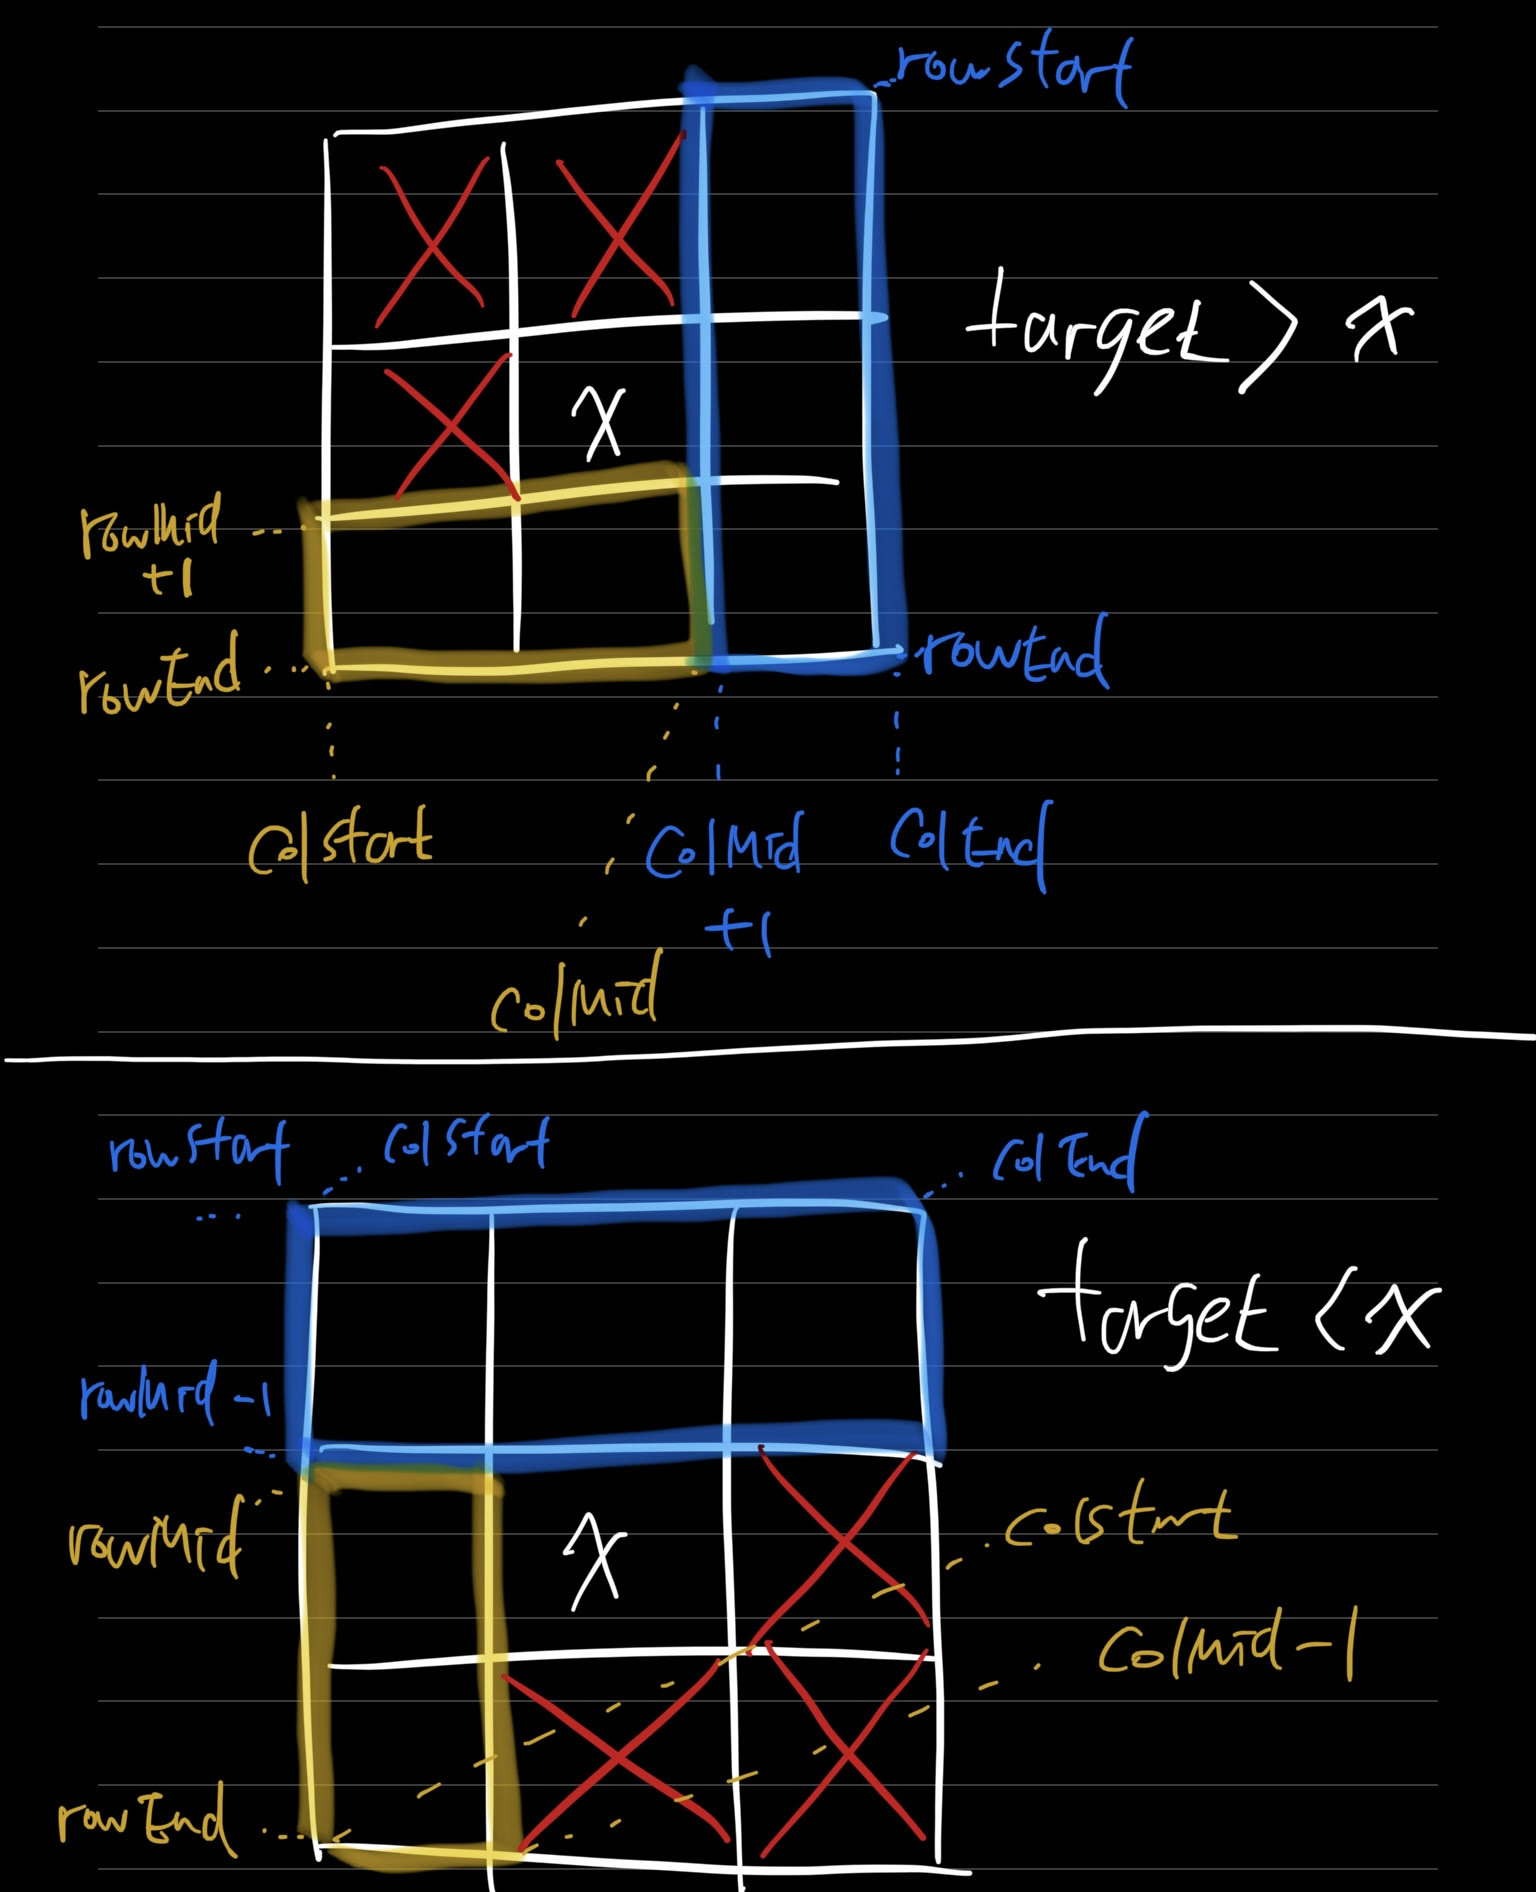 rowstart
target > x
x
rowMid
+1
rowEnd
rowEnd
colstart
colMid
+1
colEnd
colMid
rowstart
colstart
colEnd
target < x
rowMid -1
x
rowMid
colstart
colMid-1
rowEnd